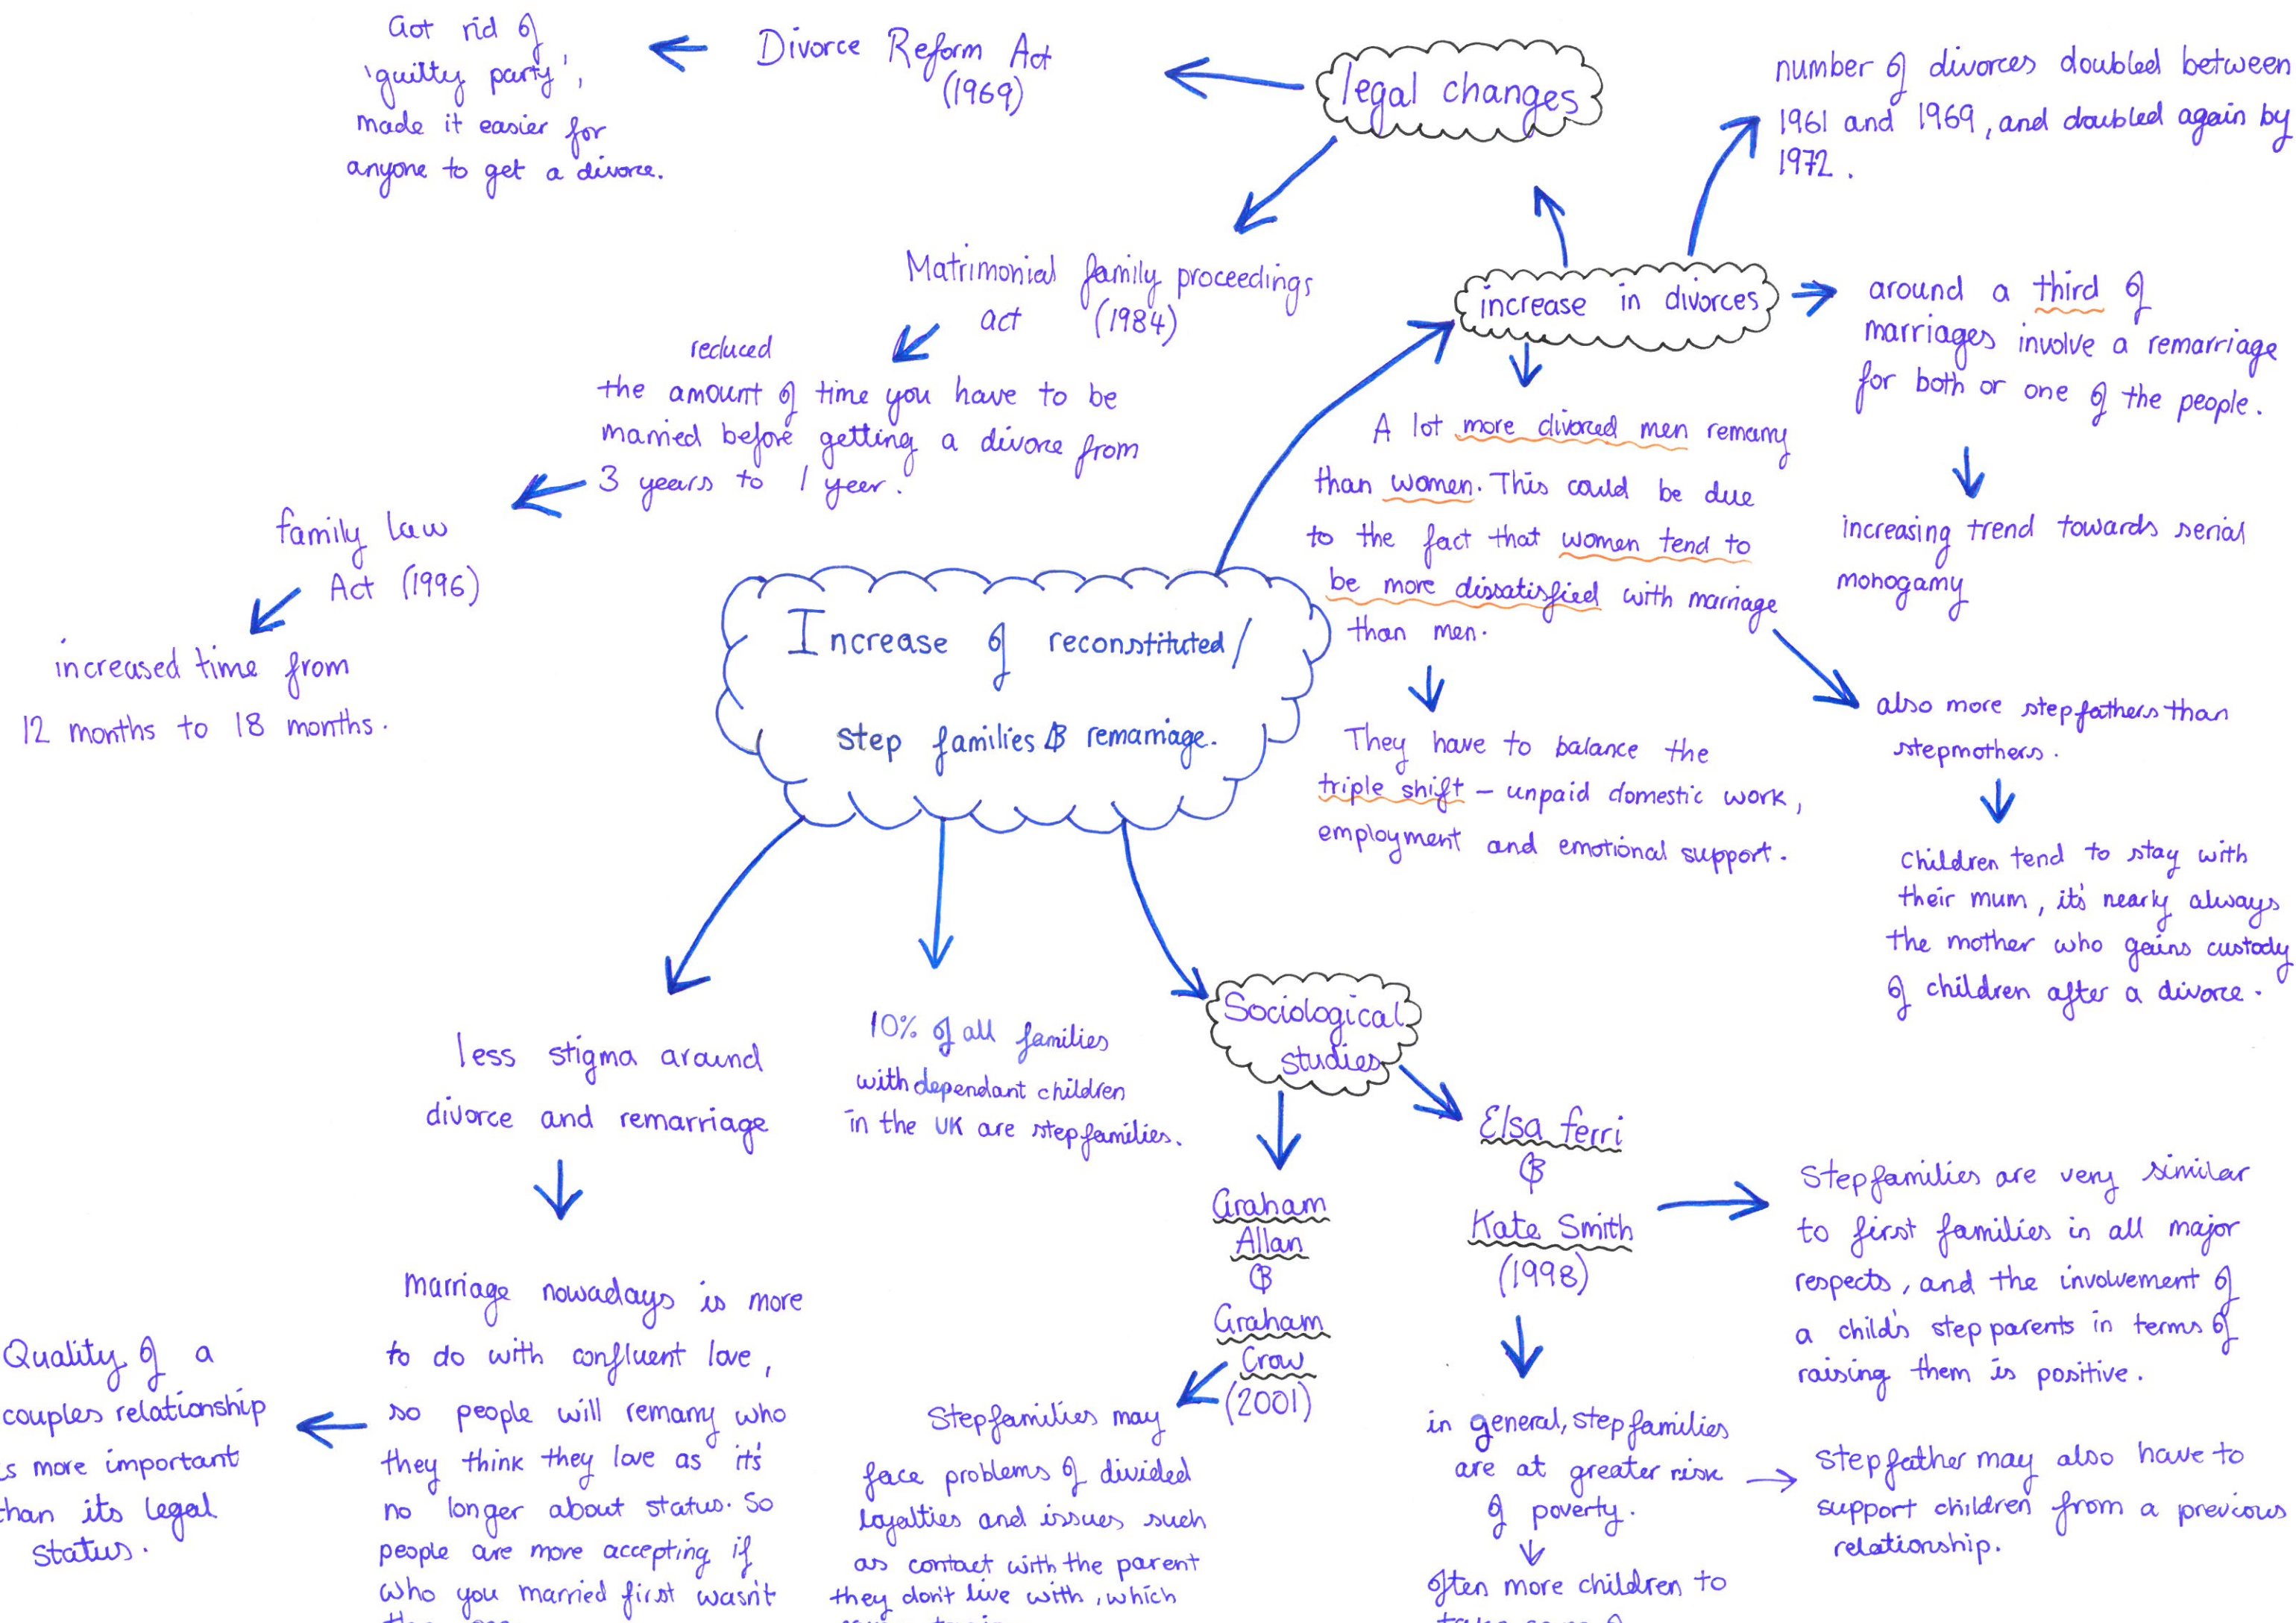 Got rid of
'guilty party',
made it easier for
anyone to get a divorce.
Divorce Reform Act
(1969)
legal changes
number of divorces doubled between
1961 and 1969, and doubled again by
1972.
Matrimonial family proceedings
act (1984)
reduced
the amount of time you have to be
married before getting a divorce from
3 years to 1 year.
family law
Act (1996)
increased time from
12 months to 18 months.
increase in divorces
around a third of
marriages involve a remarriage
for both or one of the people.
increasing trend towards serial
monogamy
A lot more divorced men remarry
than women. This could be due
to the fact that women tend to
be more dissatisfied with marriage
than men.
They have to balance the
triple shift – unpaid domestic work,
employment and emotional support.
also more stepfathers than
stepmothers.
Children tend to stay with
their mum, it's nearly always
the mother who gains custody
of children after a divorce.
Increase of reconstituted/
step families & remarriage.
less stigma around
divorce and remarriage
marriage nowadays is more
to do with confluent love,
so people will remarry who
they think they love as it's
no longer about status. So
people are more accepting if
who you married first wasn't
Quality of a
couples relationship
is more important
than its legal
status.
10% of all families
with dependant children
in the UK are stepfamilies.
Sociological
studies
Graham
Allan
&
Graham
Crow
(2001)
Stepfamilies may
face problems of divided
loyalties and issues such
as contact with the parent
they don't live with, which
Elsa ferri
&
Kate Smith
(1998)
Stepfamilies are very similar
to first families in all major
respects, and the involvement of
a child's step parents in terms of
raising them is positive.
in general, stepfamilies
are at greater risk
of poverty.
often more children to
stepfather may also have to
support children from a previous
relationship.